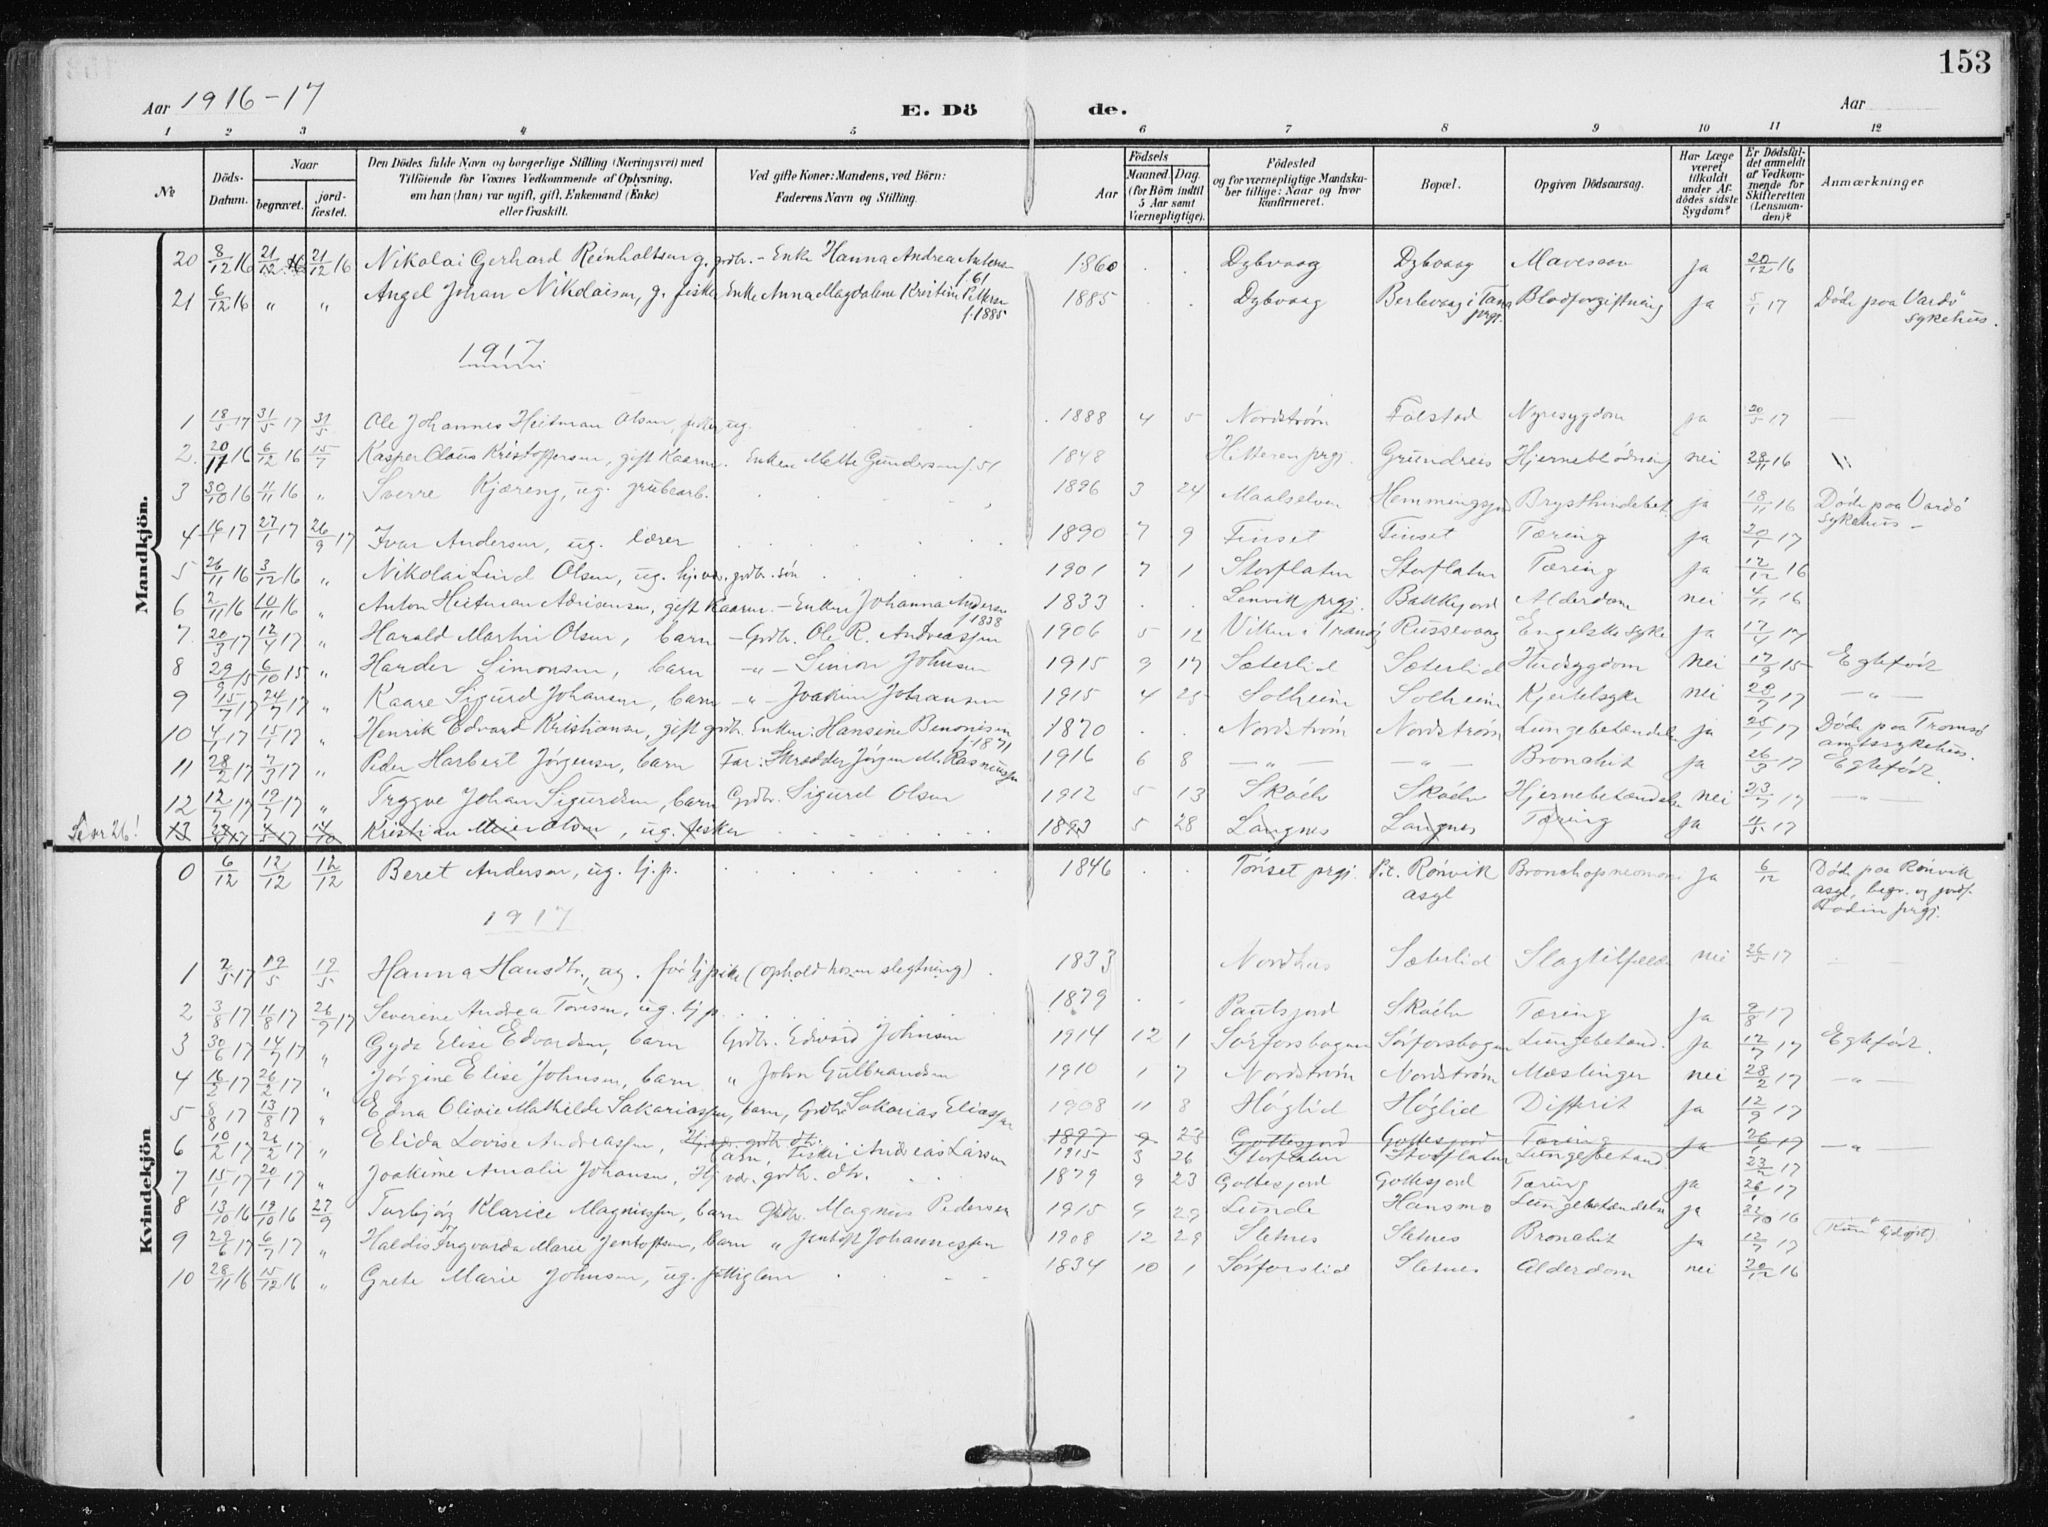 153
Aar 1916-17 E. Dö de. Aar
1 2 3 4 5 6 7 8 9 10 11 12
No Döds-Datum. Naar begravet. jord-fæstet. Den Dödes fulde Navn og borgerlige Stilling (Næringsvei) med Tilföiende for Voxnes Vedkommende af Oplysning, om han (hun) var ugift, gift, Enkemand (Enke) eller fraskilt. Ved gifte Koner: Mandens, ved Börn: Faderens Navn og Stilling. Födsels Aar Maaned. Dag. (for Börn indtil 5 Aar samt Værnepligtige). Födested og for værnepligtige Mandskaber tillige: Naar og hvor konfirmeret. Bopæl. Opgiven Dödsaarsag. Har Læge været tilkaldt under Afdödes sidste Sygdom? Er Dödsfaldet anmeldt af Vedkommende for Skifteretten (Lensmanden)? Anmærkninger
Mandkjön.
20 8/12 16 21/12 16 21/12 16 Nikolai Gerhard Reinholtsen g. grdbr. - Enke Hanna Andrea Antonsen f. 61 1860 . . Dybvaag Dybvaag Mavesaar ja 20/12 16
21 6/12 16 " " Angel Johan Nikolaisen, g. fisker Enke Anna Magdalene Kristine Pettersen f. 1885 1885 . . Dybvaag Berlevaag i Tana prgj. Blodforgiftning ja 5/1 17 Døde paa Vardö sykehus.
1917
1 18/5 17 31/5 17 31/5 Ole Johannes Heitman Olsen, fisker, ug. 1888 4 5 Nordstrøm Folstad Nyresygdom ja 20/5 17 —
2. 20/11 16 6/12 16 15/7 Kasper Olaus Kristoffersen, gift Kaarm. Enken Mette Gundersen f. 51 1848 Hitteren prgj. Grundreis Hjerneblødning nei 28/11 16
3 30/10 16 11/11 16 " Sverre Kjæreng, ug. grubearb. 1896 3 24 Maalselven Hemmingsjord Brysthindebet. ja 18/11 16 Døde paa Vardö sykehus -
4 16/1 17 27/1 17 26/9 17 Ivar Andersen, ug. lærer 1890 7 9 Finset Finset Tæring ja 20/1 17
5 26/11 16 3/12 16 " Nikolai Lind Olsen, ug. hj.vær. grdbr. søn 1901 7 1 Storflaten Storflaten Tæring ja 12/12 16
6 2/11 16 10/11 16 " Anton Heitman Adriansen, gift Kaarm. - Enken Johanna Andersen f. 1838 1833 . . Lenvik prgj. Bakkejord Alderdom nei 4/11 16
7. 20/3 17 12/4 17 " Harald Martin Olsen, barn - Grdbr. Ole R. Andreassen 1906 5 12 Vikten i Tranöj Russevaag Engelske syke ja 17/4 17
8 29/9 15 6/10 15 " Harder Simonsen, barn -"- Simon Johnsen 1915 9 17 Sæterlid Sæterlid Hudsygdom nei 17/9 15 Egtefödt
9 15/7 17 24/7 17 " Kaare Sigurd Johansen, barn -"- Joakim Johansen 1915 4 25 Solheim Solheim Kjertelsyke nei 28/7 17 -"-
10 4/1 17 15/1 17 " Henrik Edvard Kristiansen, gift grdbr. Enken: Hansine Benonisen f. 1871 1870 . . Nordstrøm Nordstrøm Lungebetændelse ja 25/1 17 Døde paa Tromsö amtssykehus.
11 28/2 17 7/3 17 " Peder Harbert Jørgensen, barn Far: Skrædder Jørgen M. Rasmussen 1916 6 8 -"- -"- Bronchit ja 26/3 17 Egtefödt.
12 12/7 17 19/7 17 " Trygve Johan Sigurdsen, barn Grdbr. Sigurd Olsen 1912 5 13 Skoelv Skoelv Hjernebetændelse nei 23/7 17 -"-
Se nr 26! 13 4/5 17 14/10 Kristian Meier Olsen, ug. fisker 1893 5 28 Langnes Langnes Tæring ja 4/5 17
Kvindekjön
0 6/12 12/12 12/12 Beret Andersen, ug. tj.p. 1846 . . Tönset prgj. P.t. Rønvik asyl Bronchopneomoni ja 6/12 Døde paa Rønvik asyl, begr. og jordf. Bodin prgj.
1917
1 2/5 17 19/5 19/5 Hanna Hansdtr., ug. för tj.pike (ophold hos en slegtning) 1833 Nordhus Sæterlid Slagtilfælde nei 26/5 17
2 3/8 17 11/8 17 26/9 17 Severine Andrea Tovesen, ug. tj.p. 1879 . . Paulsjord Skoelv Tæring ja 9/8 17
3 30/6 17 14/7 17 " Gyda Elise Edvardsen, barn Grdbr. Edvard Johnsen 1914 12 1 Sörforsbogen Sörforsbogen Lungebetænd. ja 12/7 17 Egtefödt.
4 16/2 17 26/2 17 " Jörgine Elise Johnsen, barn. " John Gulbrandsen 1910 1 7 Nordström Nordström Mæslinger nei 28/2 17 -"-
5 8/8 17 13/8 17 " Edna Olivie Mathilde Sakariassen, barn, Grdbr. Sakarias Eliassen 1908 11 8 Höglid Höglid Difterit ja 12/9 17
6 10/2 17 26/2 17 " Elida Lovise Andreassen, Hj.vær. grdbr. dtr. 1897 9 23 Gottesjord Gottesjord Tæring ja 26/1 17 -"-
barn, fisker Andreas Larsen 1915 3 26 Storflaten Storflaten Lungebetænd. 23/2 17
7 15/1 17 20/1 17 " Joakime Amalie Johansen, Hj.vær. grdbr. dtr. 1879 9 23 Gottesjord Gottesjord Tæring ja 26/1 17
8 13/10 16 19/10 16 27/9 Turbjörg Klarice Magnussen, barn Grdbr. Magnus Pedersen 1915 9 29 Lunde Hansmo Lungebetændelse ja 21/10 16
9 29/6 17 6/7 17 " Haldis Ingvarda Marie Jentoftsen, barn " Jentoft Johannessen 1908 12 29 Sletnes Sletnes Bronchit ja 12/7 17
10 28/11 16 15/12 16 " Grete Marie Johnsen, ug. fattiglem 1834 10 1 Sörforslid Sletnes Alderdom nei 20/12 16